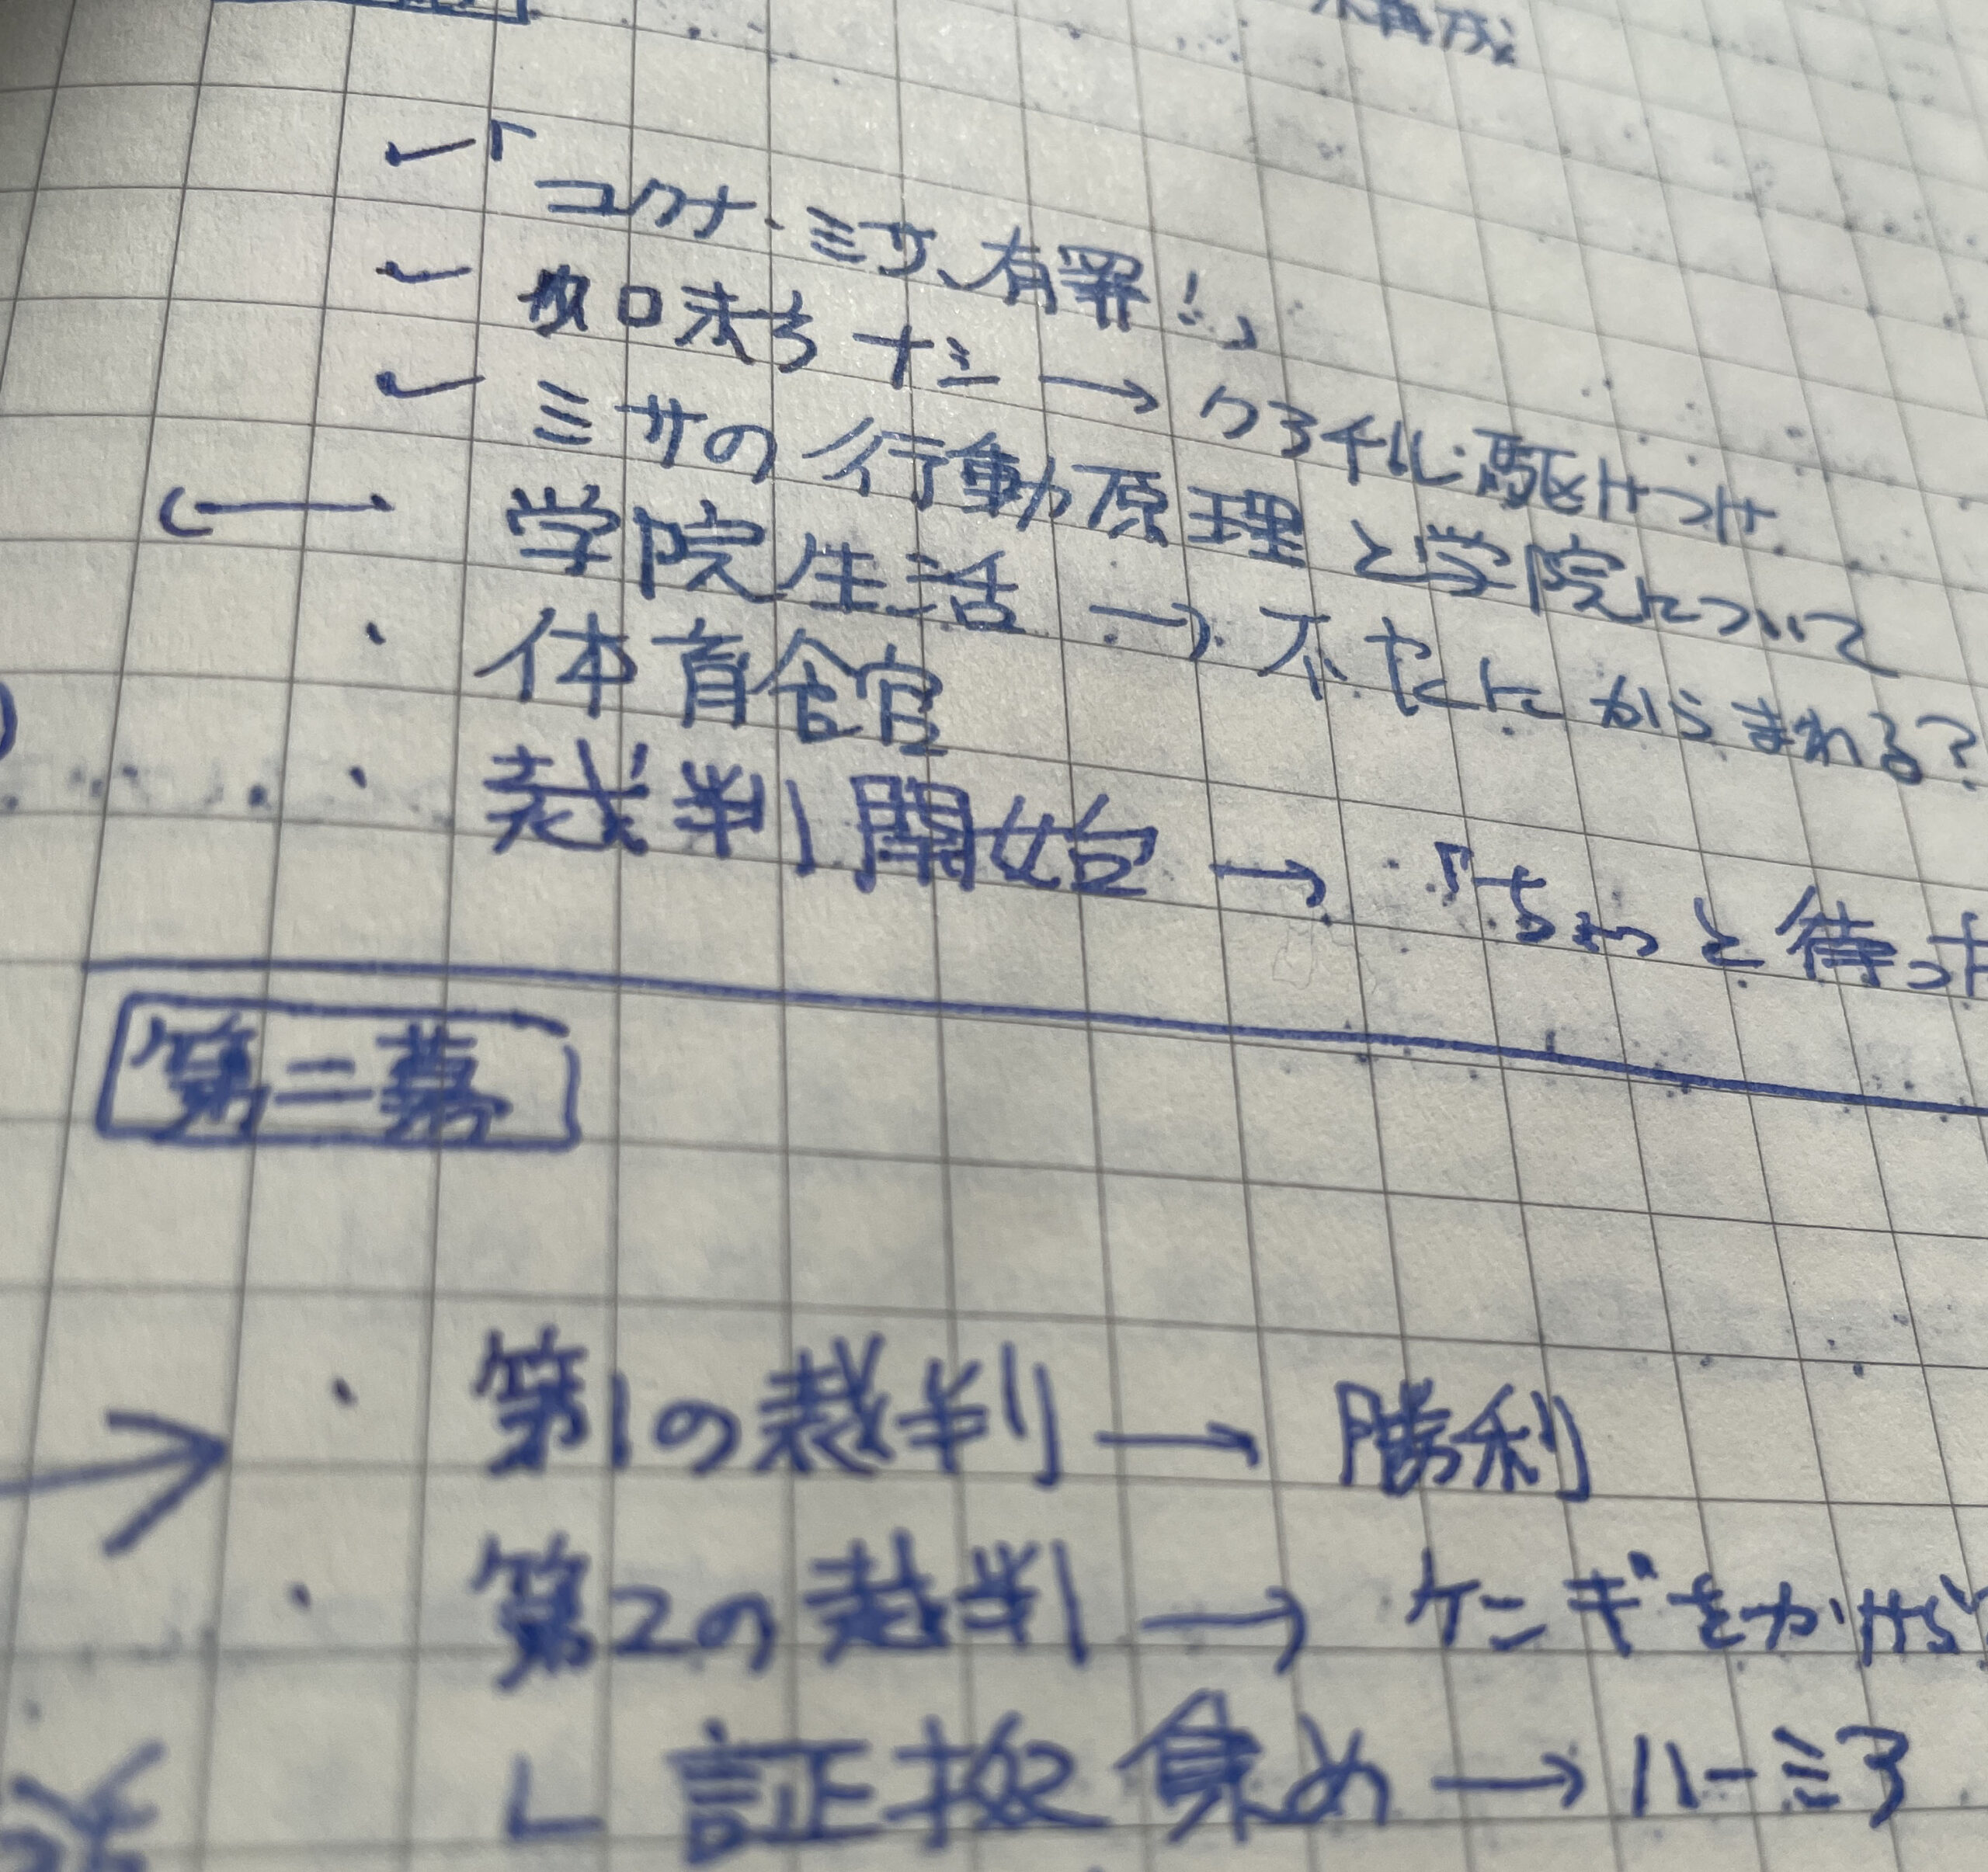 「コクナ・ミサ、有罪!」
ナシ → クラチル駆けつけ
ミサの行動原理と学院について
学院生活 → にからまれる?
体育館
裁判開始 → 『ちょっと待った
第二幕
第1の裁判 → 勝利
第2の裁判 → ケンギをかけら
証拠集め → ハーミア